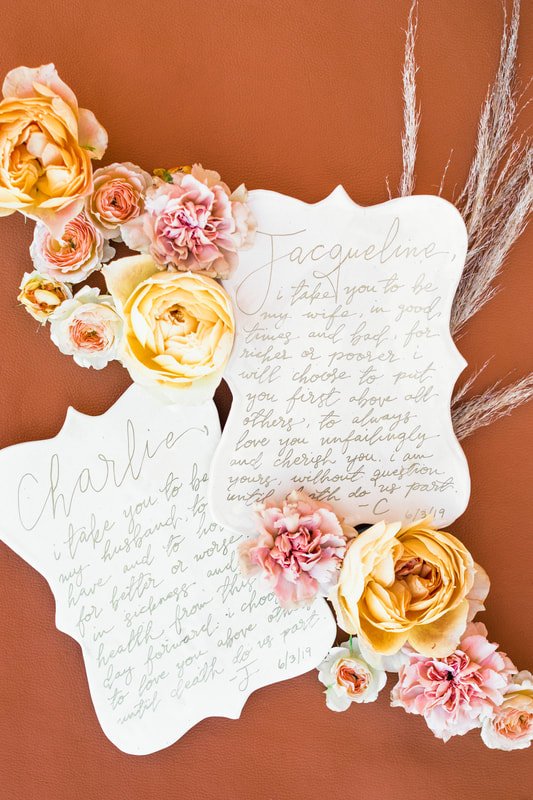 Jacqueline,
i take you to be
my wife, in good
times and bad, for
richer or poorer. i
will choose to put
you first above all
others, to always
love you unfailingly
and cherish you. i am
yours, without question
until do us part.
-C 6/3/19
Charlie,
i take you to be
my husband, to
have and to
for better or worse
in sickness and
health, from this
day forward. i
to love you above
until death do us part.
-J 6/3/19